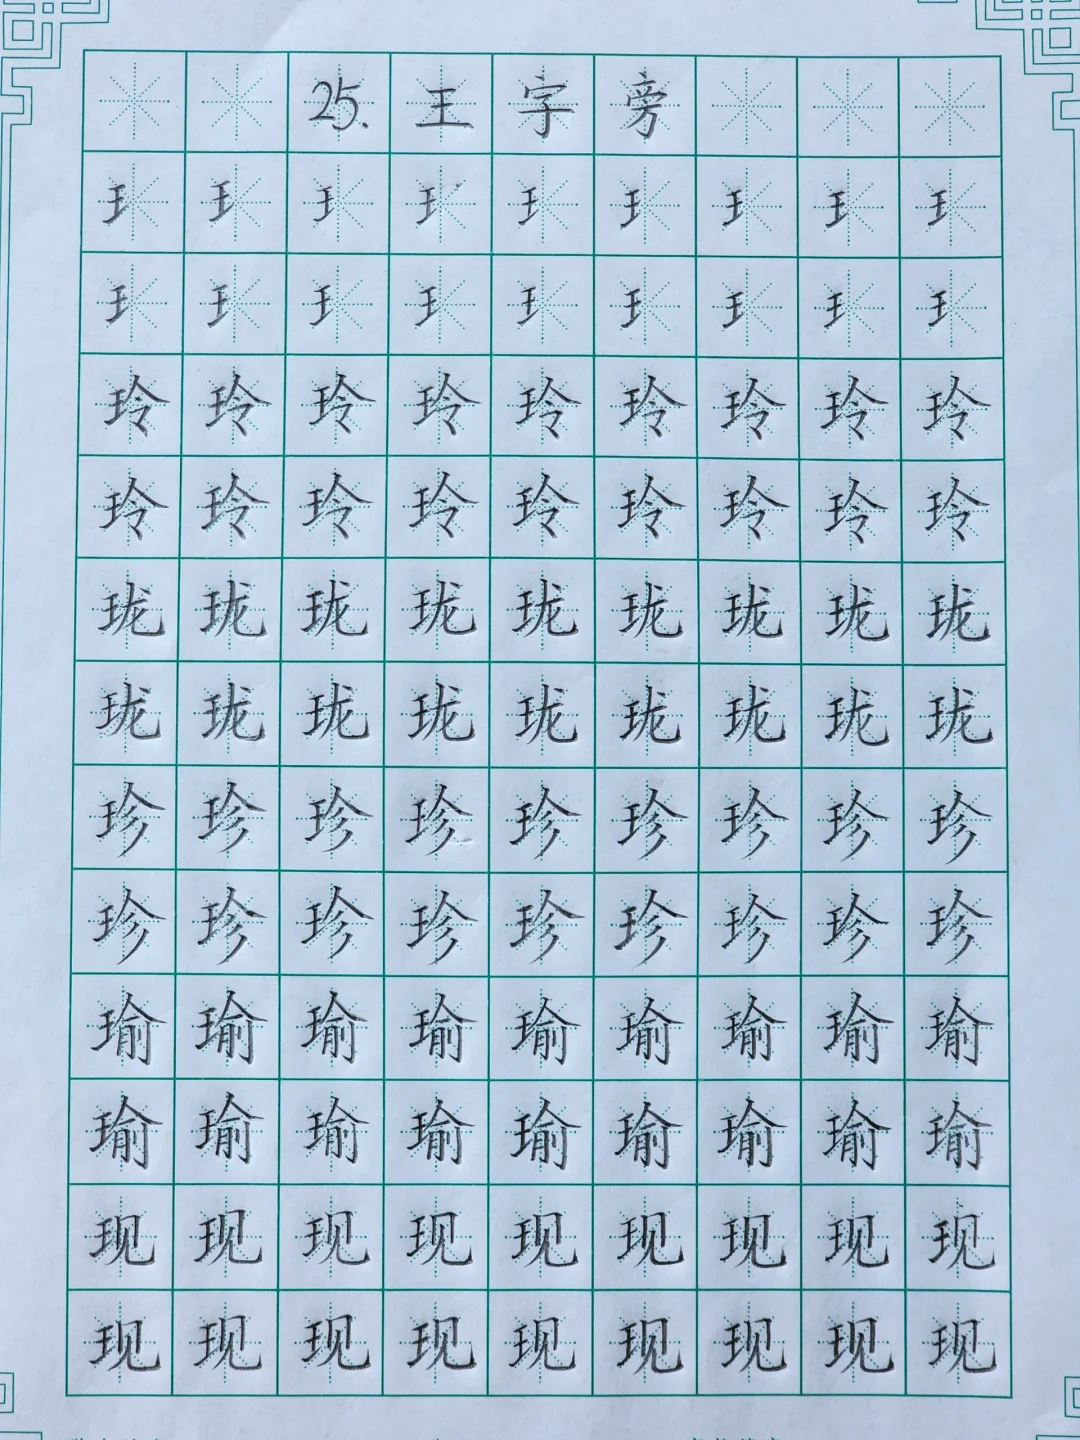 25. 王字旁
𤣩𤣩𤣩𤣩𤣩𤣩𤣩𤣩𤣩
𤣩𤣩𤣩𤣩𤣩𤣩𤣩𤣩𤣩
玲玲玲玲玲玲玲玲玲
玲玲玲玲玲玲玲玲玲
珑珑珑珑珑珑珑珑珑
珑珑珑珑珑珑珑珑珑
珍珍珍珍珍珍珍珍珍
珍珍珍珍珍珍珍珍珍
瑜瑜瑜瑜瑜瑜瑜瑜瑜
瑜瑜瑜瑜瑜瑜瑜瑜瑜
现现现现现现现现现
现现现现现现现现现